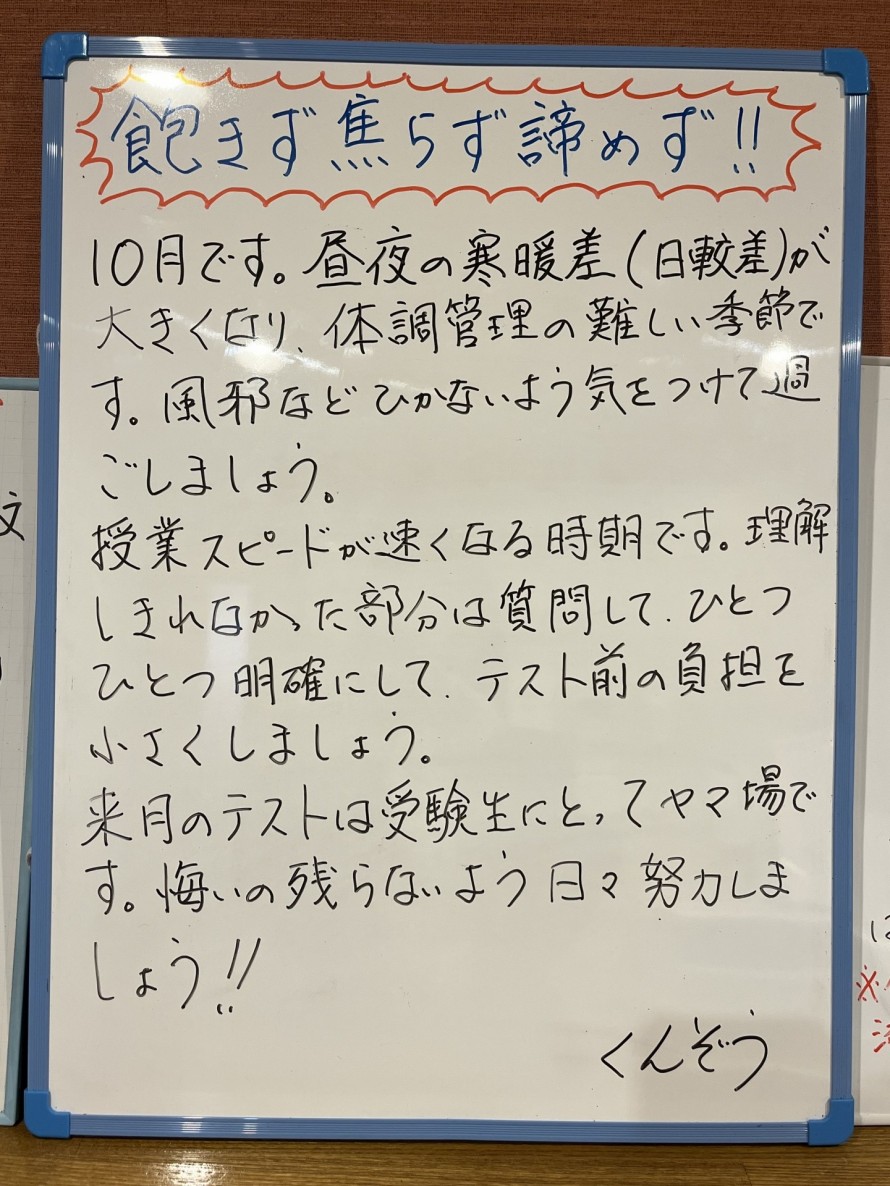 飽きず焦らず諦めず!!
10月です。昼夜の寒暖差(日較差)が
大きくなり、体調管理の難しい季節で
す。風邪などひかないよう気をつけて過
ごしましょう。
授業スピードが速くなる時期です。理解
しきれなかった部分は質問して、ひとつ
ひとつ明確にして、テスト前の負担を
小さくしましょう。
来月のテストは受験生にとってヤマ場で
す。悔いの残らないよう日々努力しま
しょう!!
くんぞう
文
は